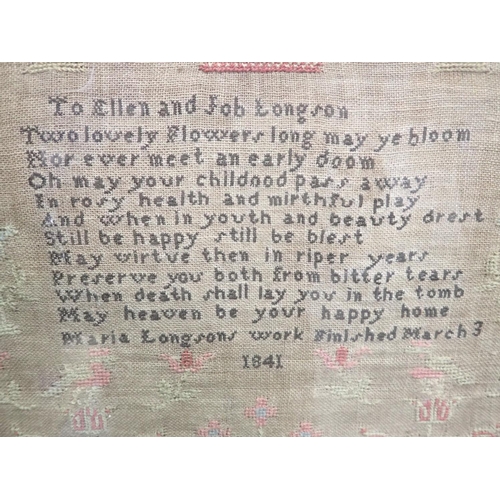 To Ellen and Job Longson
Two lovely Flowers long may ye bloom
Nor ever meet an early doom
Oh may your childood pass away
In rosy health and mirthful play
And when in youth and beauty drest
Still be happy still be blest
May virtve then in riper years
Preserve yov both from bitter tears
When death shall lay yov in the tomb
May heaven be your happy home
Maria Longsons work Finished March 3
1841